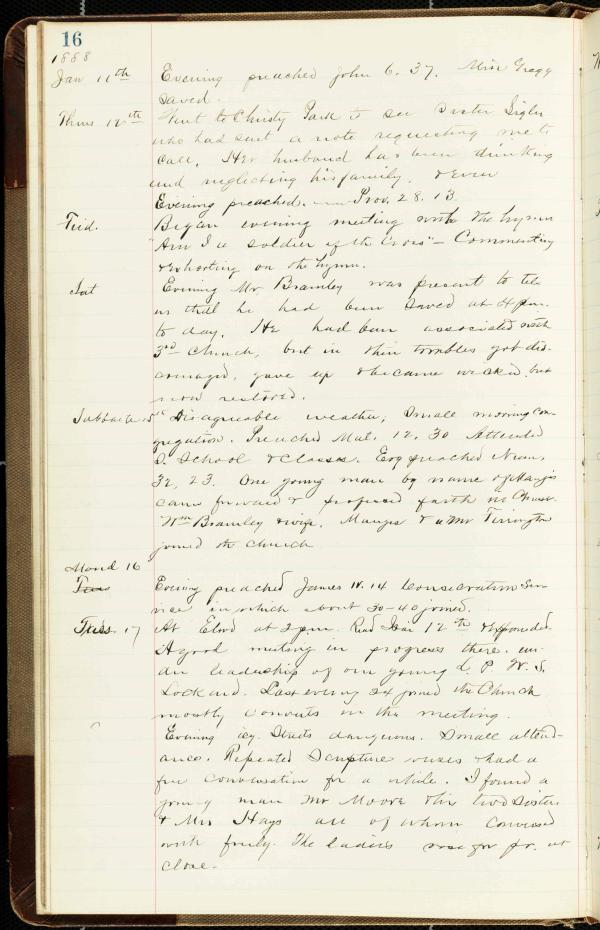 16
1888
Jan 11th Evening preached John 6. 37. Miss Gregg
saved.
Thurs 12th Went to Christy Park to see Sister Sigler
who had sent a note requesting me to
call. Her husband has been drinking
and neglecting his family.
Evening preached. Prov. 28. 13
Frid. Began evening meeting with the hymn
"Am I a soldier of the Cross" - Commenting
& exhorting on the hymn.
Sat Evening Mr Bramley was present to tell
us that he had been saved at 4 pm.
to day. He had been associated with
3rd Church, but in their troubles got dis-
couraged, gave up & became wicked, but
now restored.
Sabbath 15th Disagreeable weather, small morning con-
gregation. Preached Mat. 12. 30 Attended
S. School & Classes. Evg preached Num.
32, 23. One young man by name of
came forward & professed faith in Christ.
Wm Bramley & wife, & a Mr
joined the Church
Mond 16
Tues Evening preached James IV. 14 Consecration Ser-
vice in which about 30-40 joined.
Tues. 17 At at 2 pm. Read Isai 12th & expounded.
A good meeting in progress there. un-
der leadership of our young L. P. W. S.
Lockard. Last evening 24 joined the Church
mostly converts in the meeting.
Evening icy. Streets dangerous. Small attend-
ance. Repeated Scripture verses & had a
free conversation for a while. I found a
young man Mr Moore & his two Sisters
& Mrs Hays all of whom conversed
with freely. The ladies rose for pr. at
close.